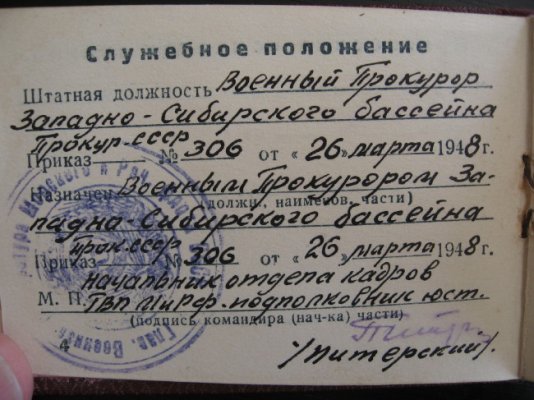 Служебное положение
Штатная должность Военный Прокурор
Западно-Сибирского бассейна
Прокур. СССР
Приказ № 306 от «26» марта 1948 г.
Назначен Военным Прокурором За-
(должн., наименов. части)
падно-Сибирского бассейна
прок. СССР
Приказ № 306 от «26» марта 1948 г.
Начальник отдела кадров
М. П. ГВП МиРФ. подполковник юст.
(подпись командира (нач-ка) части)
/Питерский/.
4